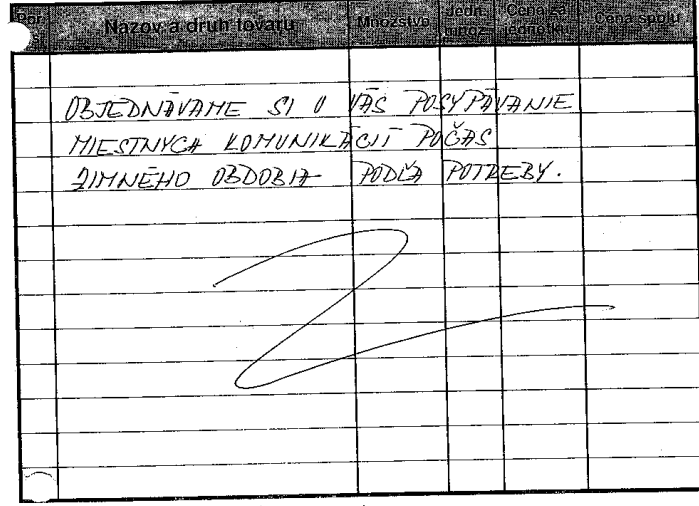 Por. Názov a druh tovaru Množstvo Jedn. množ. Cena za jednotku Cena spolu
OBJEDNÁVAME SI U VÁS POSYPÁVANIE
MIESTNYCH KOMUNIKÁCIÍ POČAS
ZIMNÉHO OBDOBIA PODĽA POTREBY.